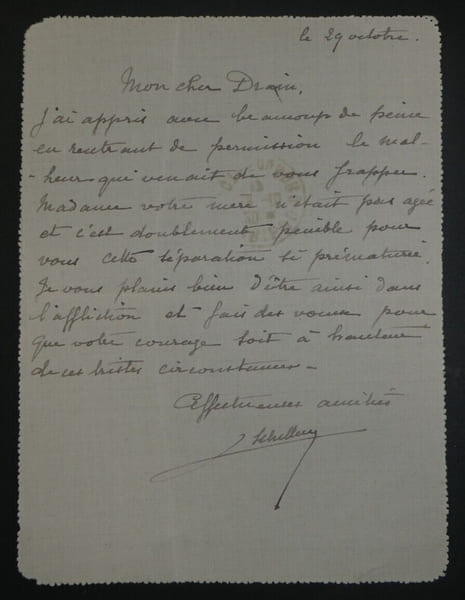 le 29 octobre.
Mon cher Drain,
J'ai appris avec beaucoup de peine
en rentrant de permission le mal-
-heur qui venait de vous frapper.
Madame votre mere n'était pas agée
et c'est doublement penible pour
vous cette séparation si prématurée.
Je vous plains bien d'être ainsi dans
l'affliction et fais des voeux pour
que votre courage soit à hauteur
de ces tristes circonstances -
Affectueuses amitiés